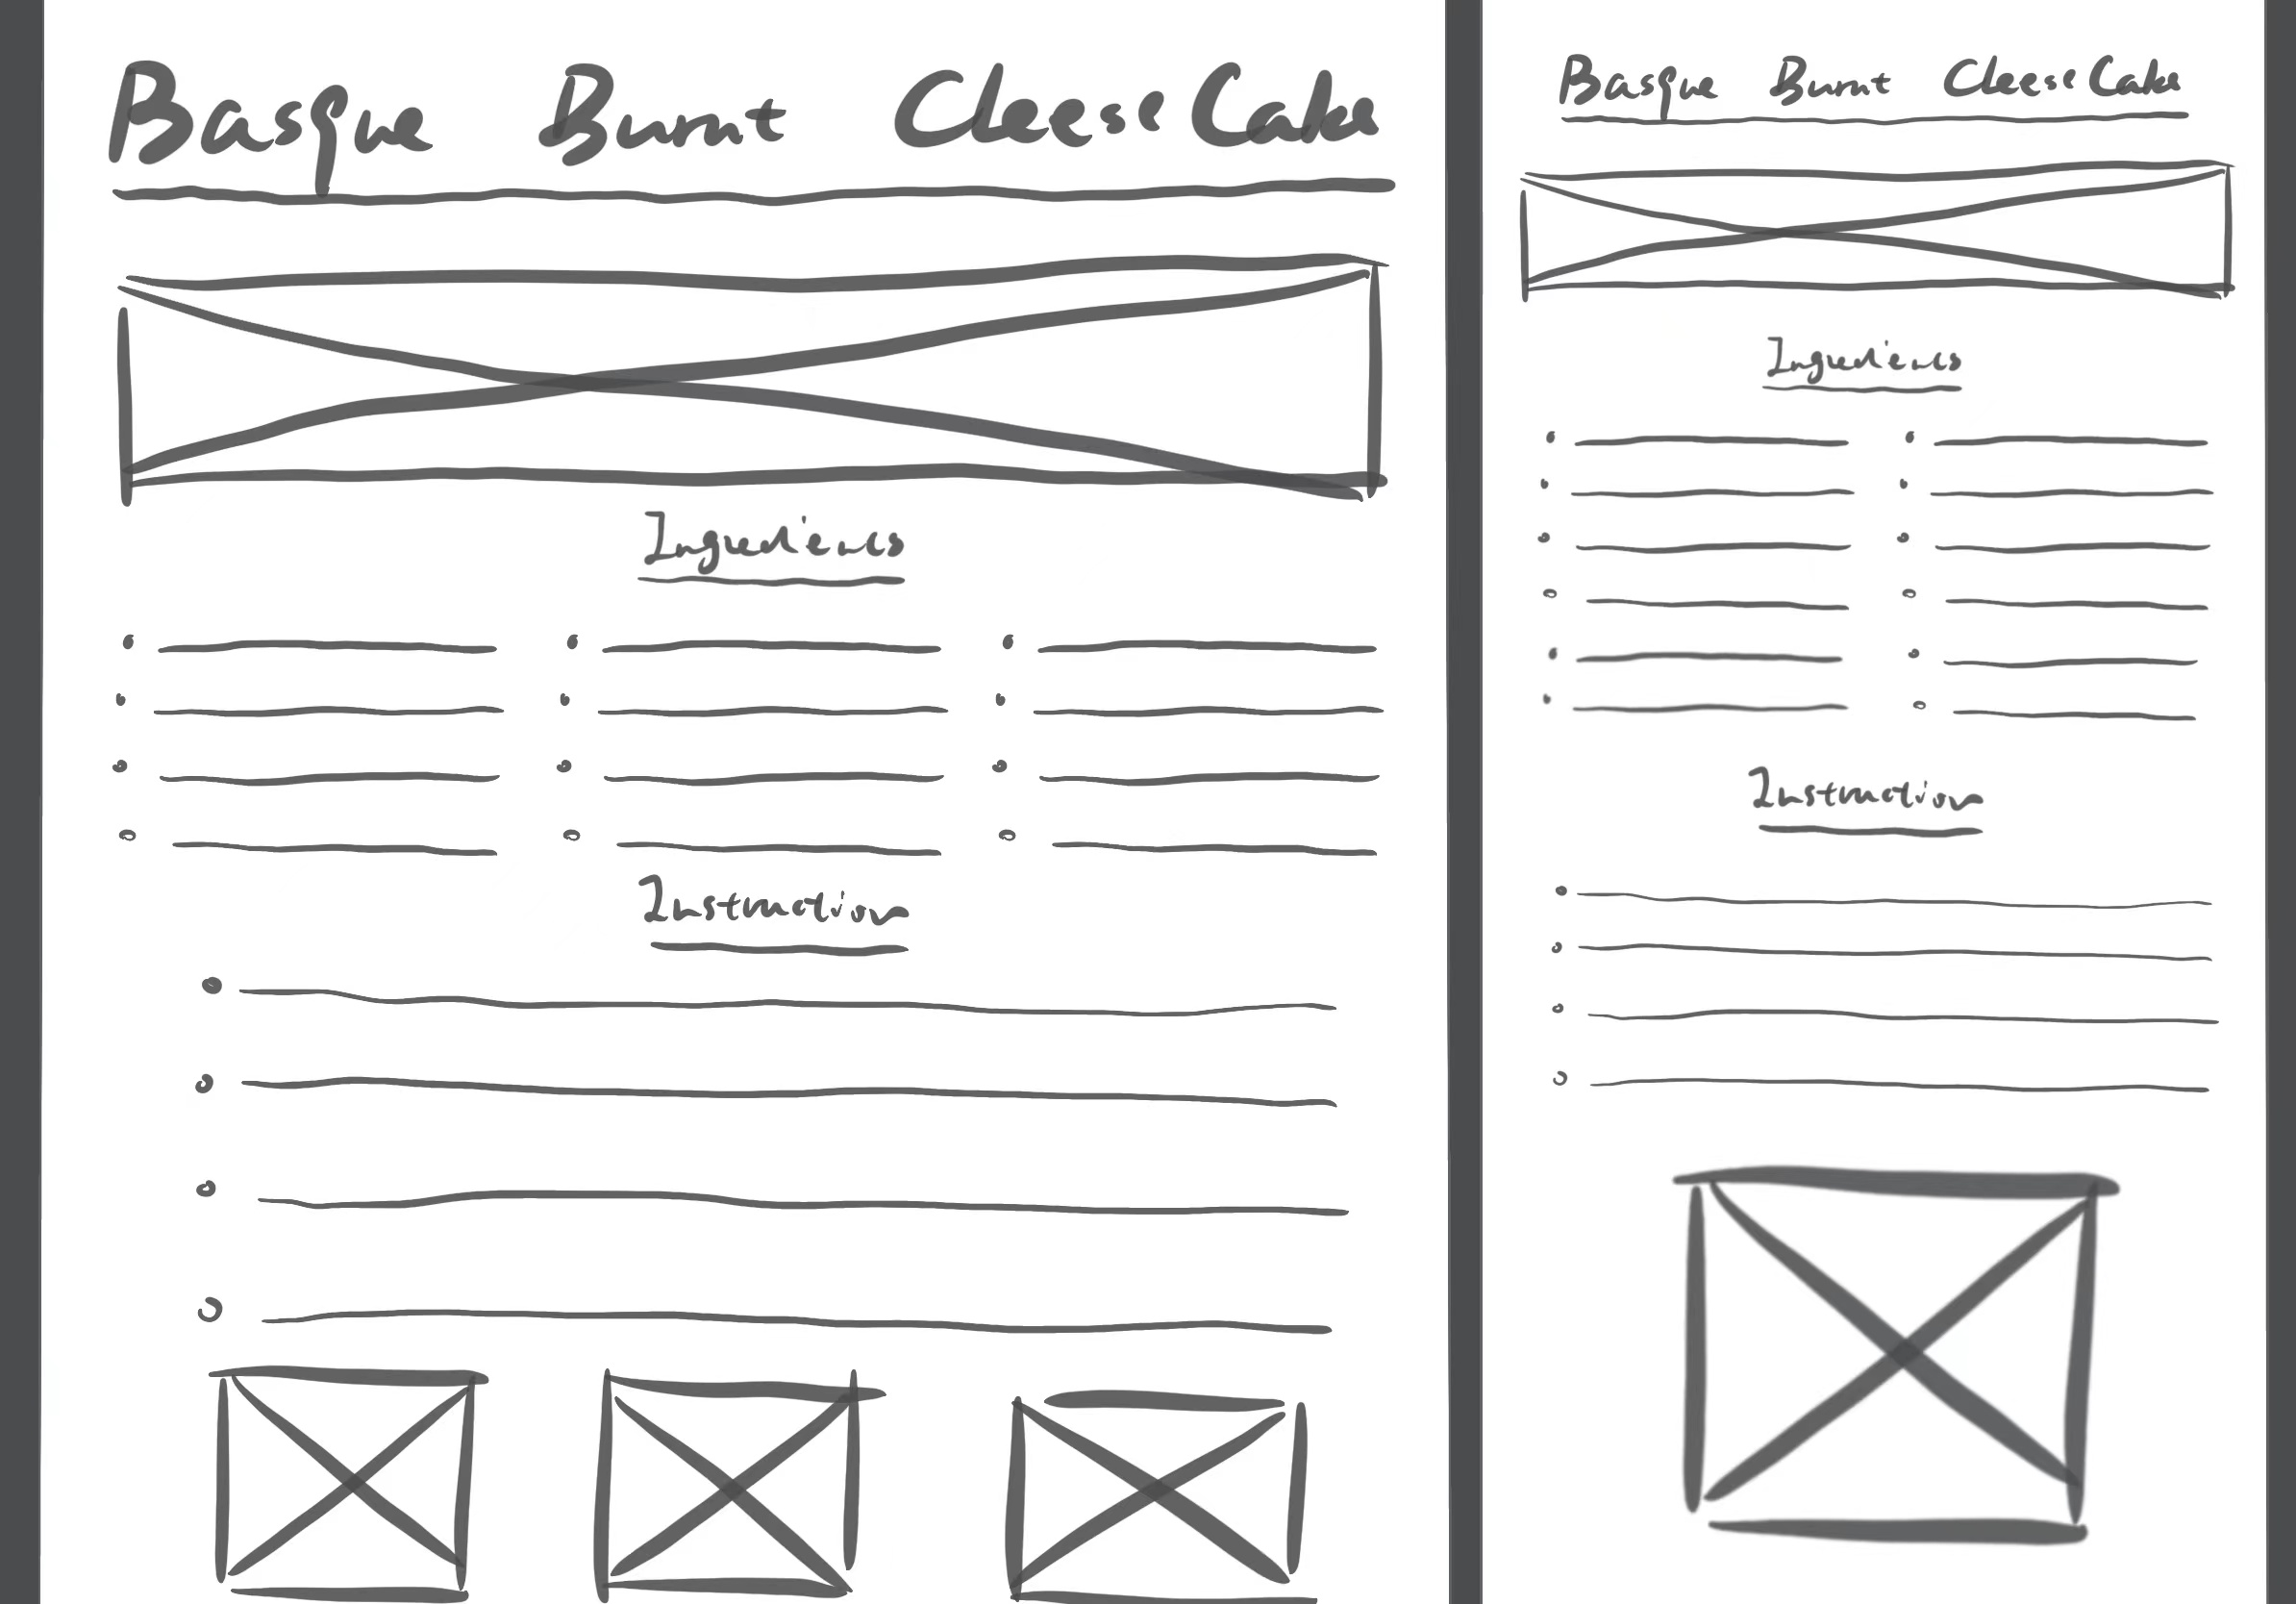 Basque Burnt Cheese Cake
Ingredients
Instruction
Basque Burnt Cheese Cake
Ingredients
Instruction